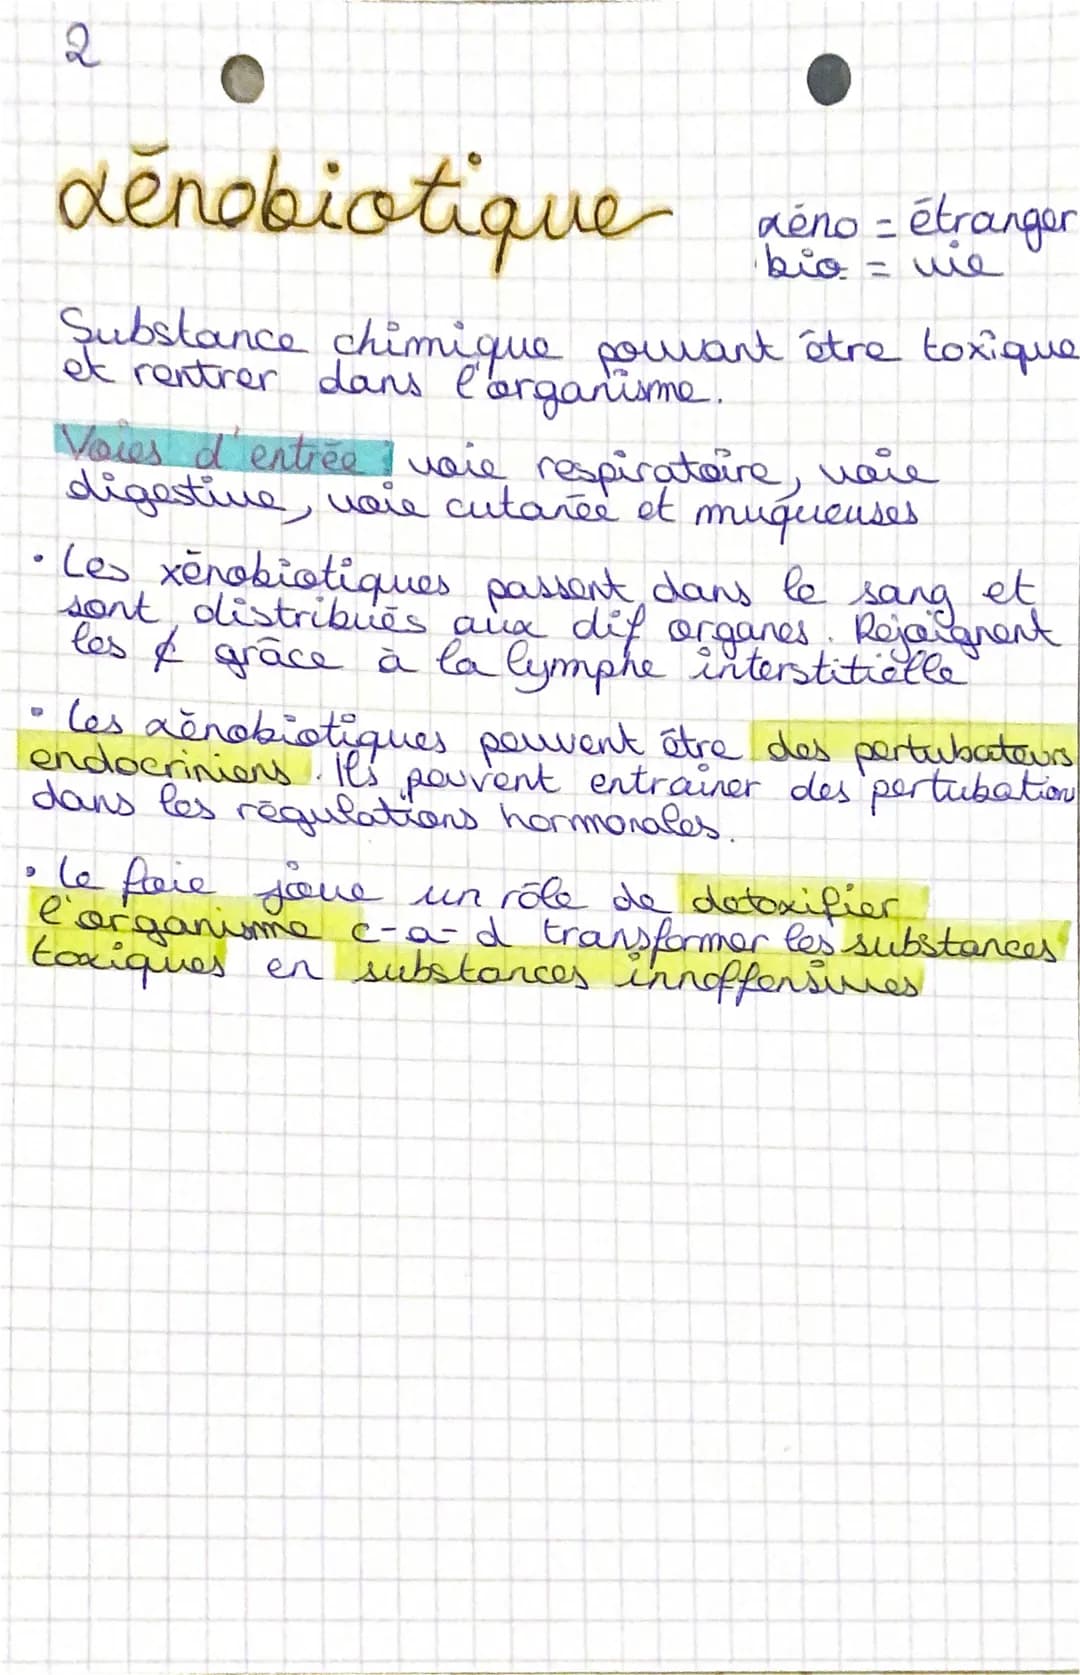 2
xénobiotique
xéno = étranger
bio = vie
Substance chimique pouvant être toxique
et rentrer dans l'organisme.
Voies d'entrée : voie respiratoire, voie
digestive, voie cutanée et muqueuses
• Les xénobiotiques passent dans le sang et
sont distribués aux dif organes. Rejoignent
les ₵ grâce à la lymphe interstitielle
• Les xénobiotiques peuvent être des pertubateurs
endocriniens. Ils peuvent entrainer des pertubation
dans les régulations hormonales.
• Le foie joue un rôle de detoxifier
l'organisme c-a-d transformer les substances
toxiques en substances innoffensives